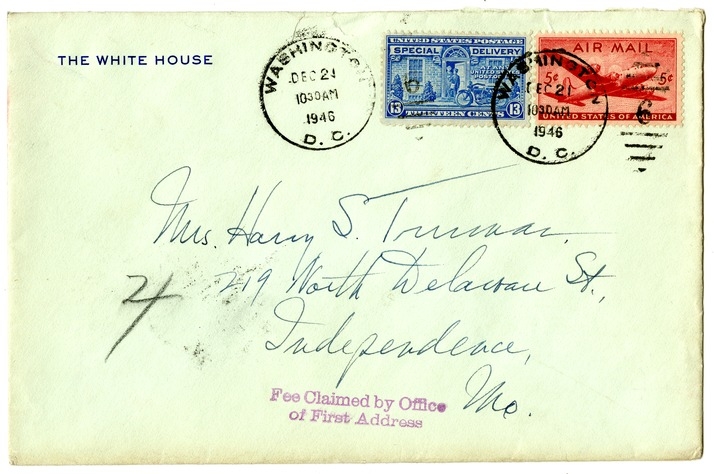 THE WHITE HOUSE
WASHINGTON
DEC 21
1030AM
1946
D. C.
UNITED STATES POSTAGE
SPECIAL DELIVERY
AT ANY
UNITED STATES
POST OFFICE
13 13
THIRTEEN CENTS
AIR MAIL
5¢ 5¢
UNITED STATES OF AMERICA
WASHINGTON
DEC 21
1030AM
1946
D. C.
6
6
Mrs. Harry S. Truman,
219 North Delaware St.,
Independence,
Mo.
4
Fee Claimed by Office
of First Address